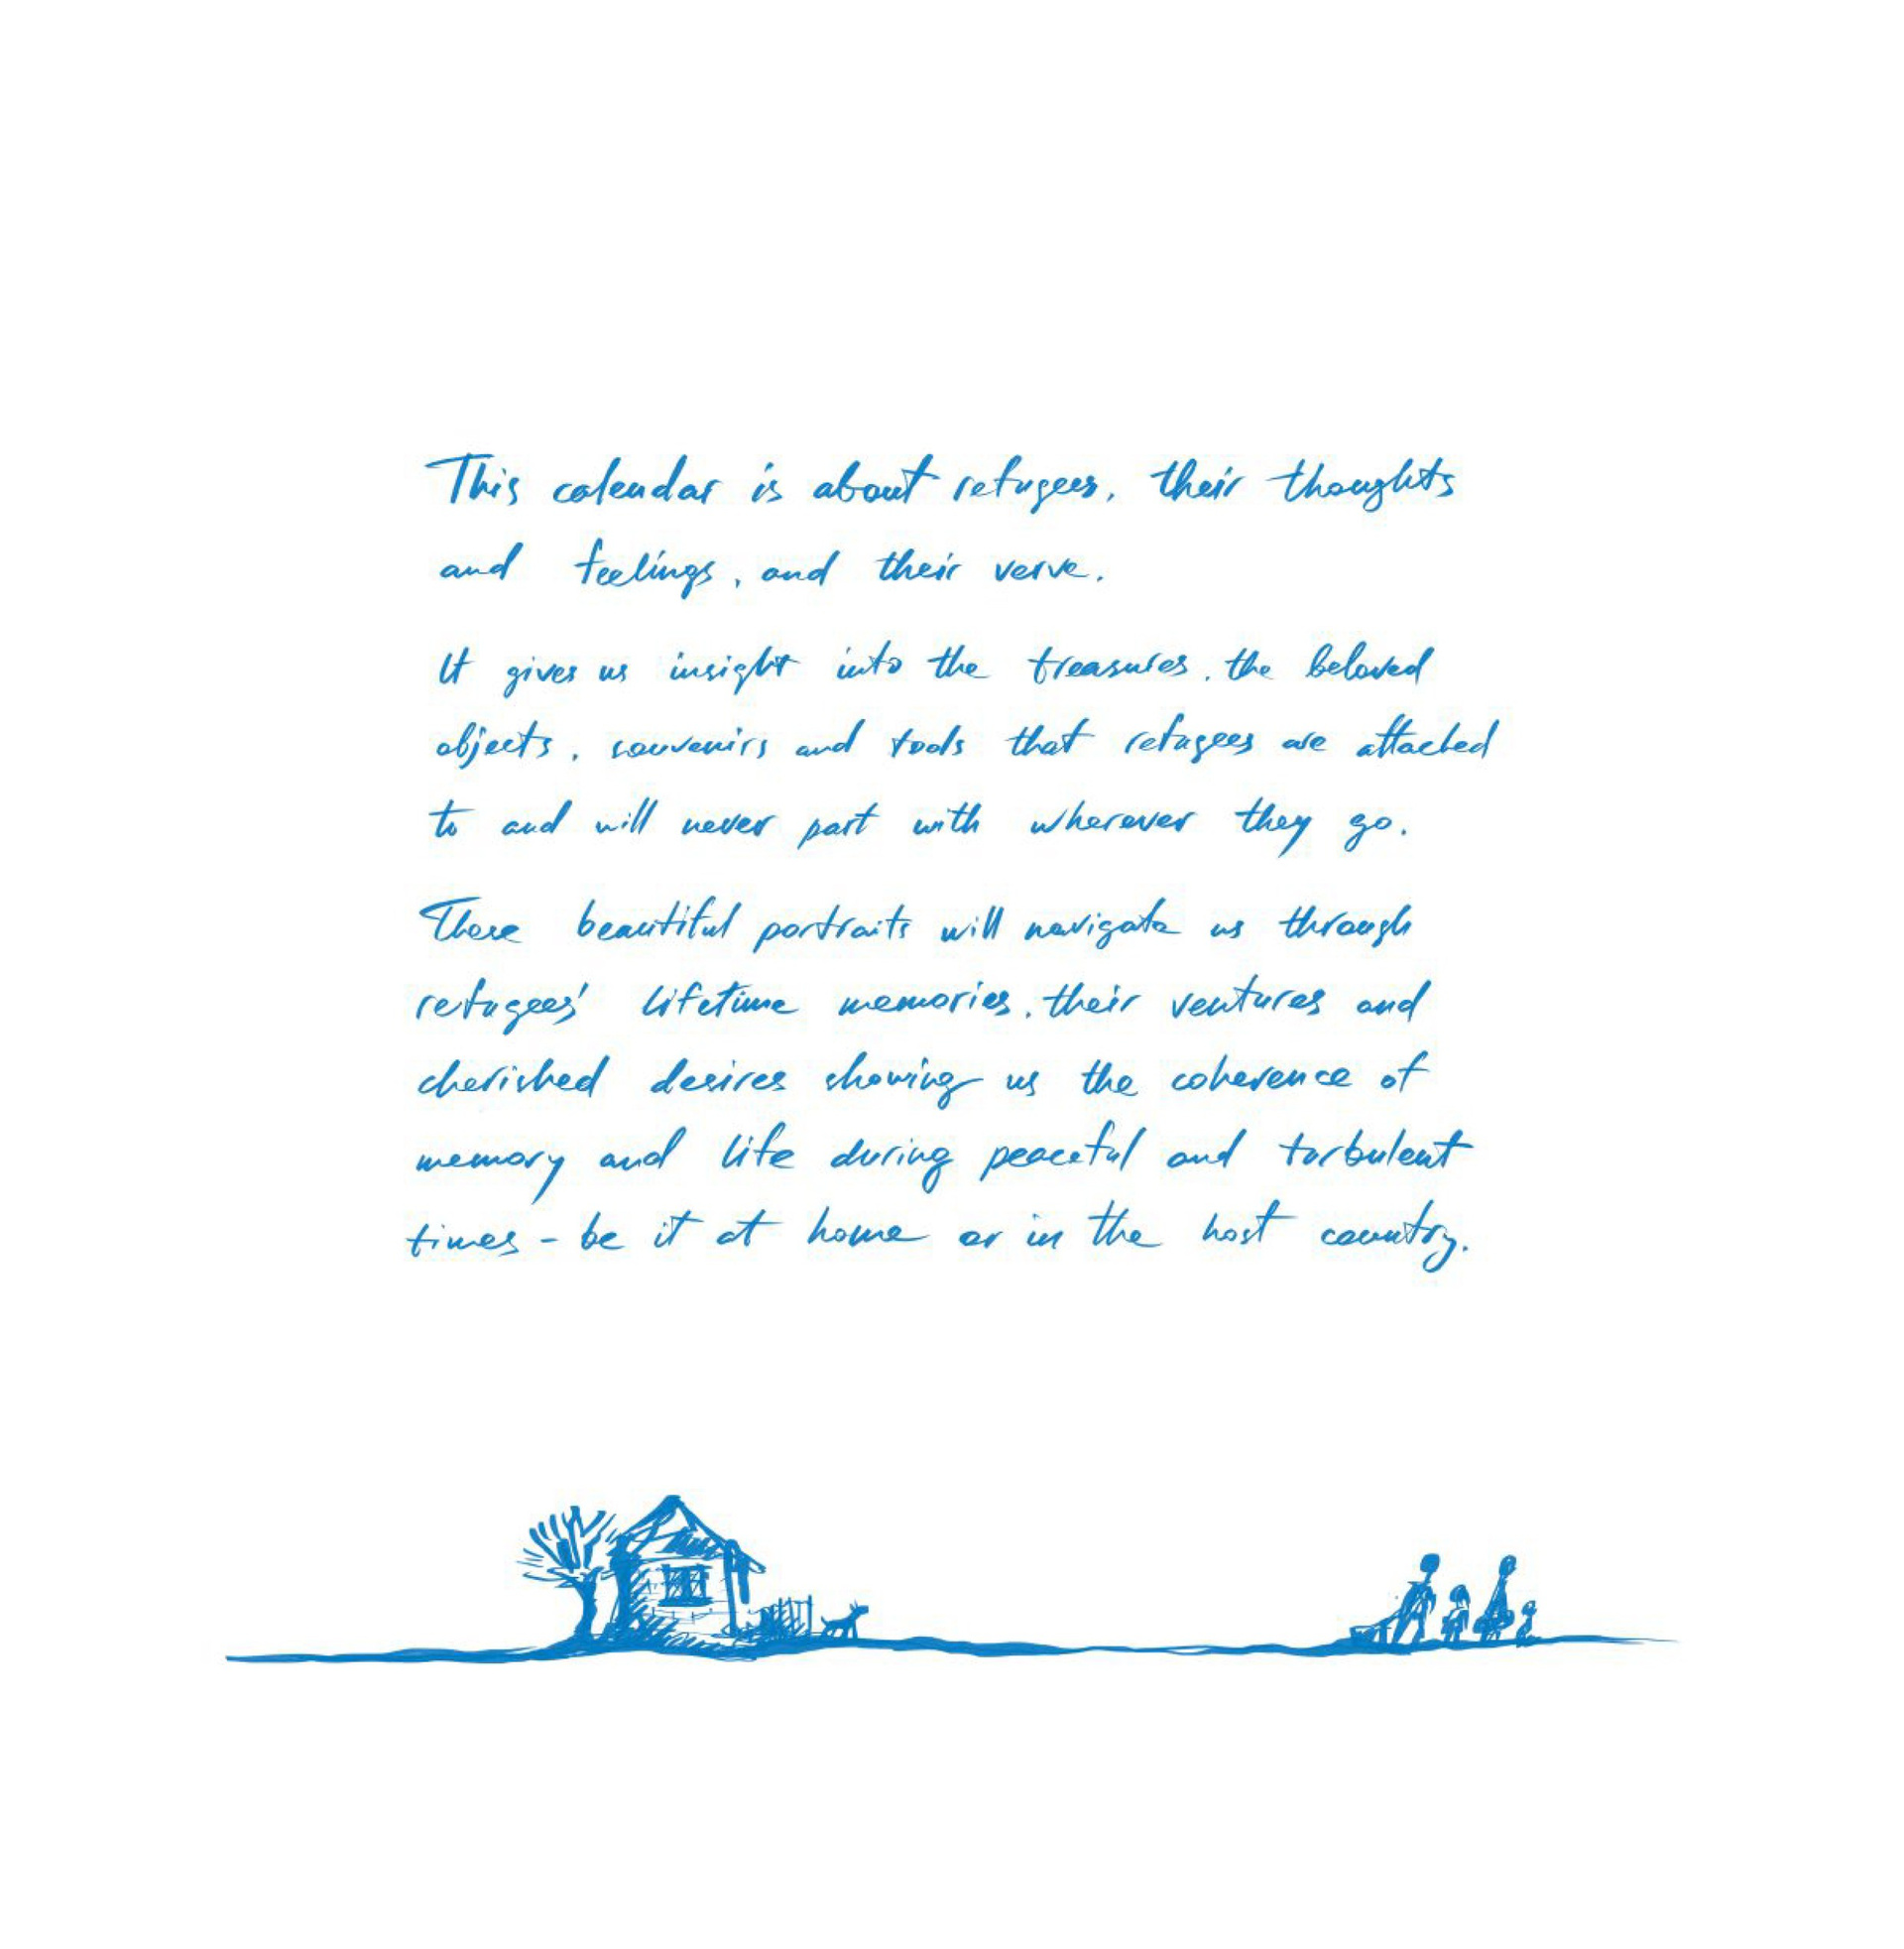 This calendar is about refugees, their thoughts
and feelings, and their verve.
It gives us insight into the treasures, the beloved
objects, souvenirs and tools that refugees are attached
to and will never part with wherever they go.
These beautiful portraits will navigate us through
refugees' lifetime memories, their ventures and
cherished desires showing us the coherence of
memory and life during peaceful and turbulent
times - be it at home or in the host country.